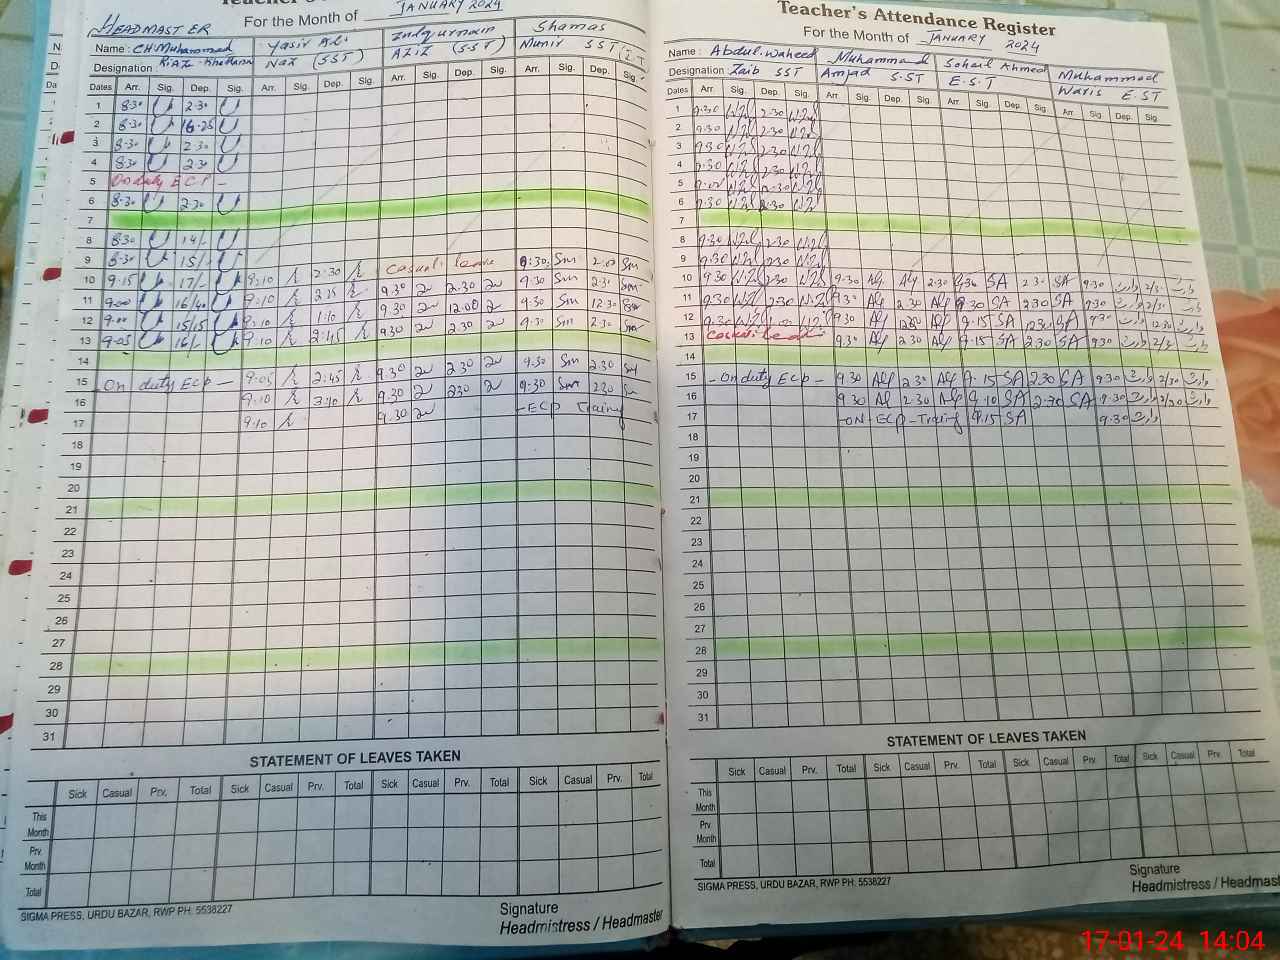 HEADMASTER
For the Month of JANUARY 2024
Name : CH Muhammad Yasir Ali Zulqurnain Shamas
Designation : Riaz Naz (SST) AZIZ (SST) Munir SST
Dates Arr. Sig. Dep. Sig. Arr. Sig. Dep. Sig. Arr. Sig. Dep. Sig. Arr. Sig. Dep. Sig.
1 8.30 2.30
2 8.30 16.25
3 8.30 2.30
4 8.30 2.30
5 On duty ECP -
6 8.30 2.30
7
8 8.30 14/-
9 8.30 15/- Casual leave 9:30 Sm 2.00 Sm
10 9.15 17/- 9.10 2:30 9.30 2.30 9.30 Sm 2.30 Sm
11 9.00 16/40 9.10 2.15 9.30 12.00 9.30 Sm 12.30 Sm
12 9.00 15/15 9.10 1:10 9.30 2.30 9.30 Sm 2.30 Sm
13 9.05 16/- 9.10 2:45
14
15 On duty ECP - 9.05 2:45 9.30 2.30 9.30 Sm 2.30 Sm
16 9.10 9.30 2.30 9.30 Sm 2.30 Sm
17 9.10 9.30 -ECP Training
18
19
20
21
22
23
24
25
26
27
28
29
30
31
STATEMENT OF LEAVES TAKEN
Sick Casual Prv. Total Sick Casual Prv. Total Sick Casual Prv. Total Sick Casual Prv. Total
This Month
Prv. Month
Total
SIGMA PRESS, URDU BAZAR, RWP PH: 5538227
Signature
Headmistress / Headmaster
Teacher's Attendance Register
For the Month of JANUARY 2024
Name : Abdul.Waheed Muhammad Sohail Ahmed Muhammad
Designation : Zaib SST Amjad S.ST E.S.T Waris EST
Dates Arr. Sig. Dep. Sig. Arr. Sig. Dep. Sig. Arr. Sig. Dep. Sig. Arr. Sig. Dep. Sig.
1 9.30 2.30
2 9.30 2.30
3 9.30 2.30
4 9.30 2.30
5 9.00 2.30
6 9.30 2.30
7
8 9.30 2.30
9 9.30 2.30
10 9.30 2.30 9.30 2.30 9.30 SA 2.30 SA 9.30 وارث 2/30 وارث
11 9.30 2.30 9.30 2.30 9.30 SA 2.30 SA 9.30 وارث 2/30 وارث
12 9.30 9.30 12.30 9.15 SA 12.30 SA 9.30 وارث 12.30 وارث
13 Casual leave 9.30 2.30 9.15 SA 2.30 SA 9.30 وارث 2/30 وارث
14
15 - On duty ECP - 9.30 2.30 9.15 SA 2.30 SA 9.30 وارث 2/30 وارث
16 9.30 2.30 9.10 SA 2.30 SA 9.30 وارث 2/30 وارث
17 -ON-ECP-Training 9.15 SA 9.30 وارث
18
19
20
21
22
23
24
25
26
27
28
29
30
31
STATEMENT OF LEAVES TAKEN
Sick Casual Prv. Total Sick Casual Prv. Total Sick Casual Prv. Total Sick Casual Prv. Total
This Month
Prv. Month
Total
SIGMA PRESS, URDU BAZAR, RWP PH: 5538227
Signature
Headmistress / Headmast
17-01-24 14:04